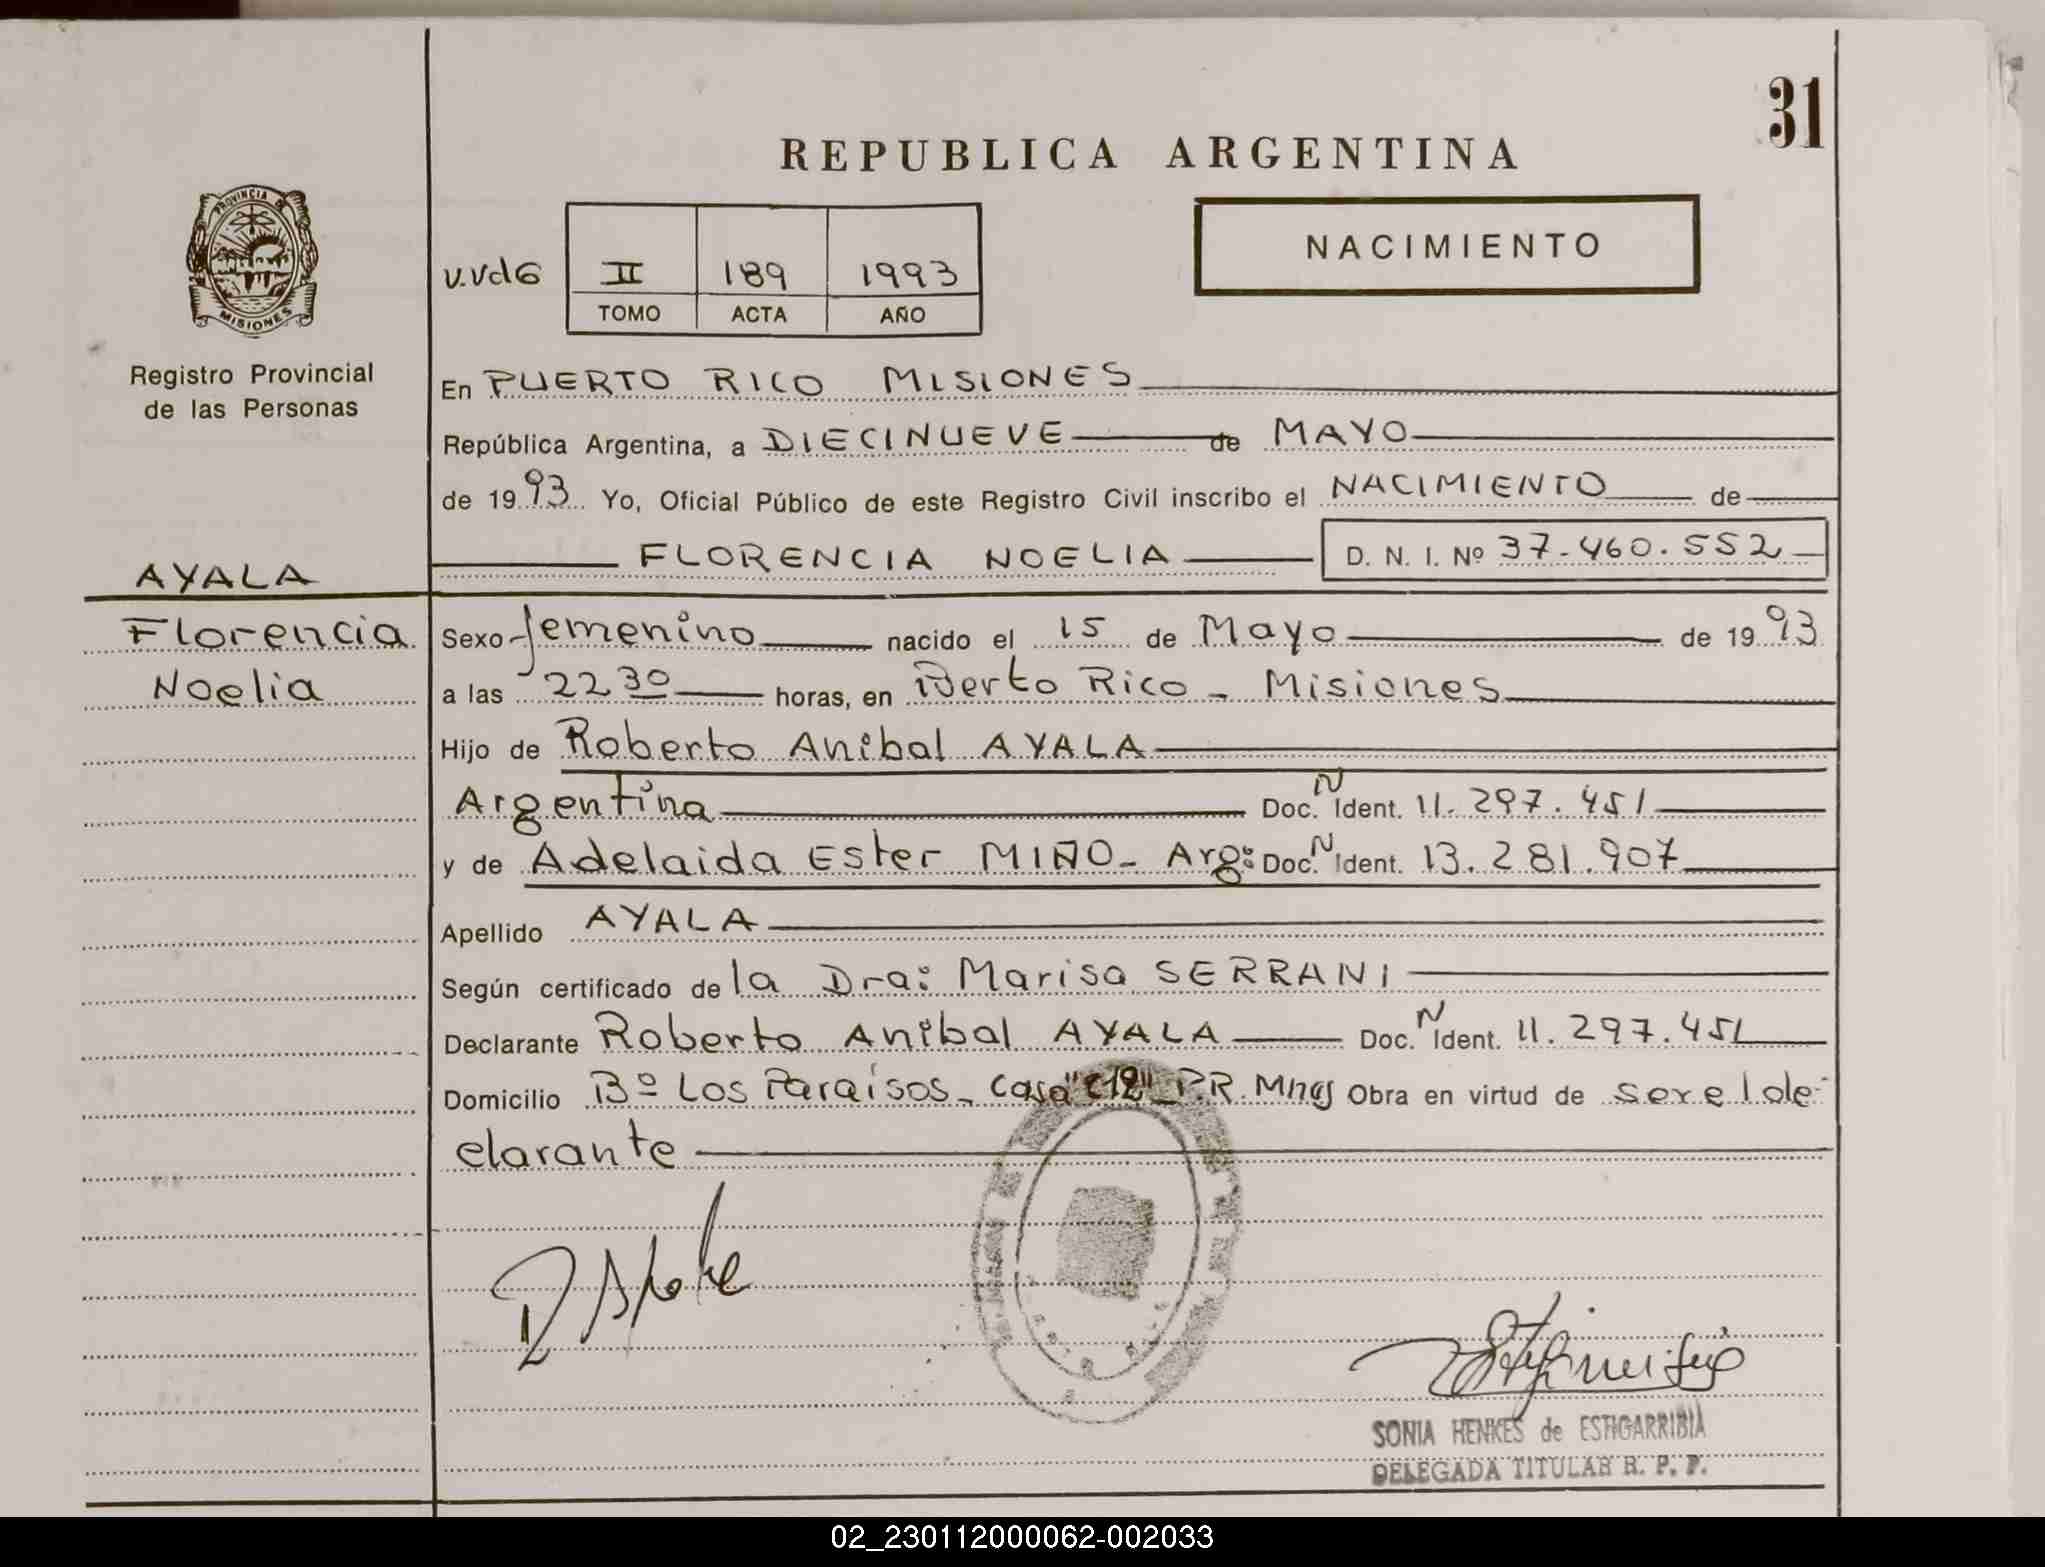 31
REPUBLICA ARGENTINA
PROVINCIA DE
MISIONES
Registro Provincial
de las Personas
V.Vd6 II 189 1993
TOMO ACTA AÑO
NACIMIENTO
En PUERTO RICO MISIONES
República Argentina, a DIECINUEVE de MAYO
de 1993 Yo, Oficial Público de este Registro Civil inscribo el NACIMIENTO de
FLORENCIA NOELIA D. N. I. Nº 37.460.552
AYALA
Florencia
Noelia
Sexo femenino nacido el 15 de Mayo de 1993
a las 22 30 horas, en Puerto Rico - Misiones
Hijo de Roberto Anibal AYALA
Argentina Doc. N Ident. 11.297.451
y de Adelaida Ester MIÑO - Arg: Doc. N Ident. 13.281.907
Apellido AYALA
Según certificado de la Dra: Marisa SERRANI
Declarante Roberto Anibal AYALA Doc. N Ident. 11.297.451
Domicilio Bº Los Paraísos - Casa "C12" P.R. Mnes Obra en virtud de ser el de-
clarante
SONIA HENKES de ESTIGARRIBIA
DELEGADA TITULAR R. P. P.
02_230112000062-002033